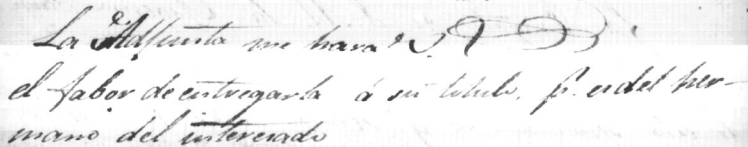 La Adjunta me hara V.
el fabor de entregarla á su titulo, p. es del her-
mano del interesado